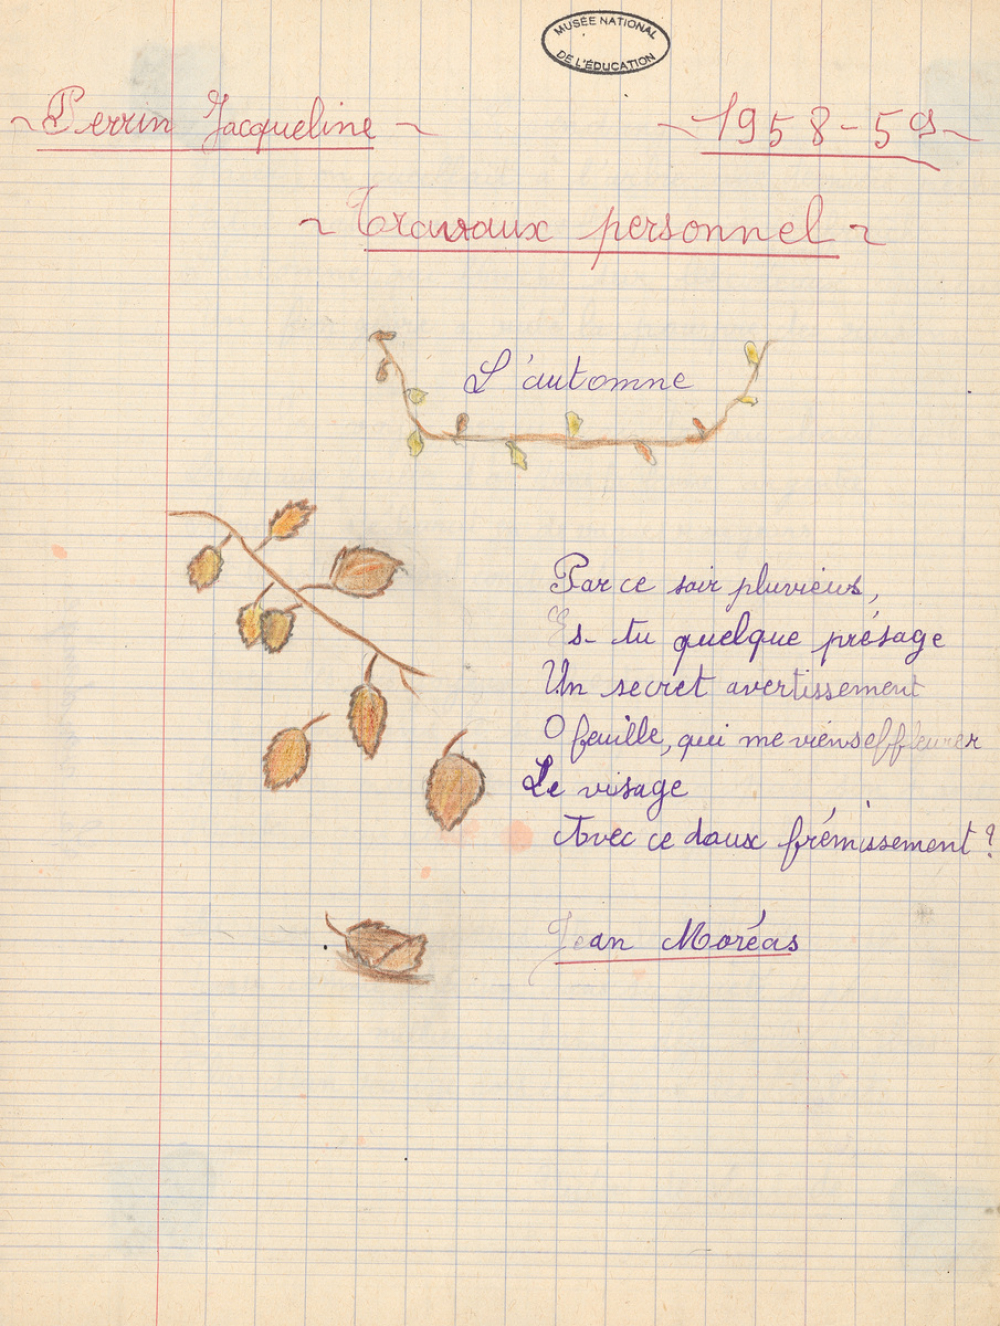 MUSÉE NATIONAL
DE L'ÉDUCATION
~ Perrin Jacqueline ~
~ 1958-59 ~
~ Travaux personnel ~
L'automne
Par ce soir pluvieux,
Es-tu quelque présage
Un secret avertissement
O feuille, qui me viens effleurer
Le visage
Avec ce doux frémissement ?
Jean Moréas